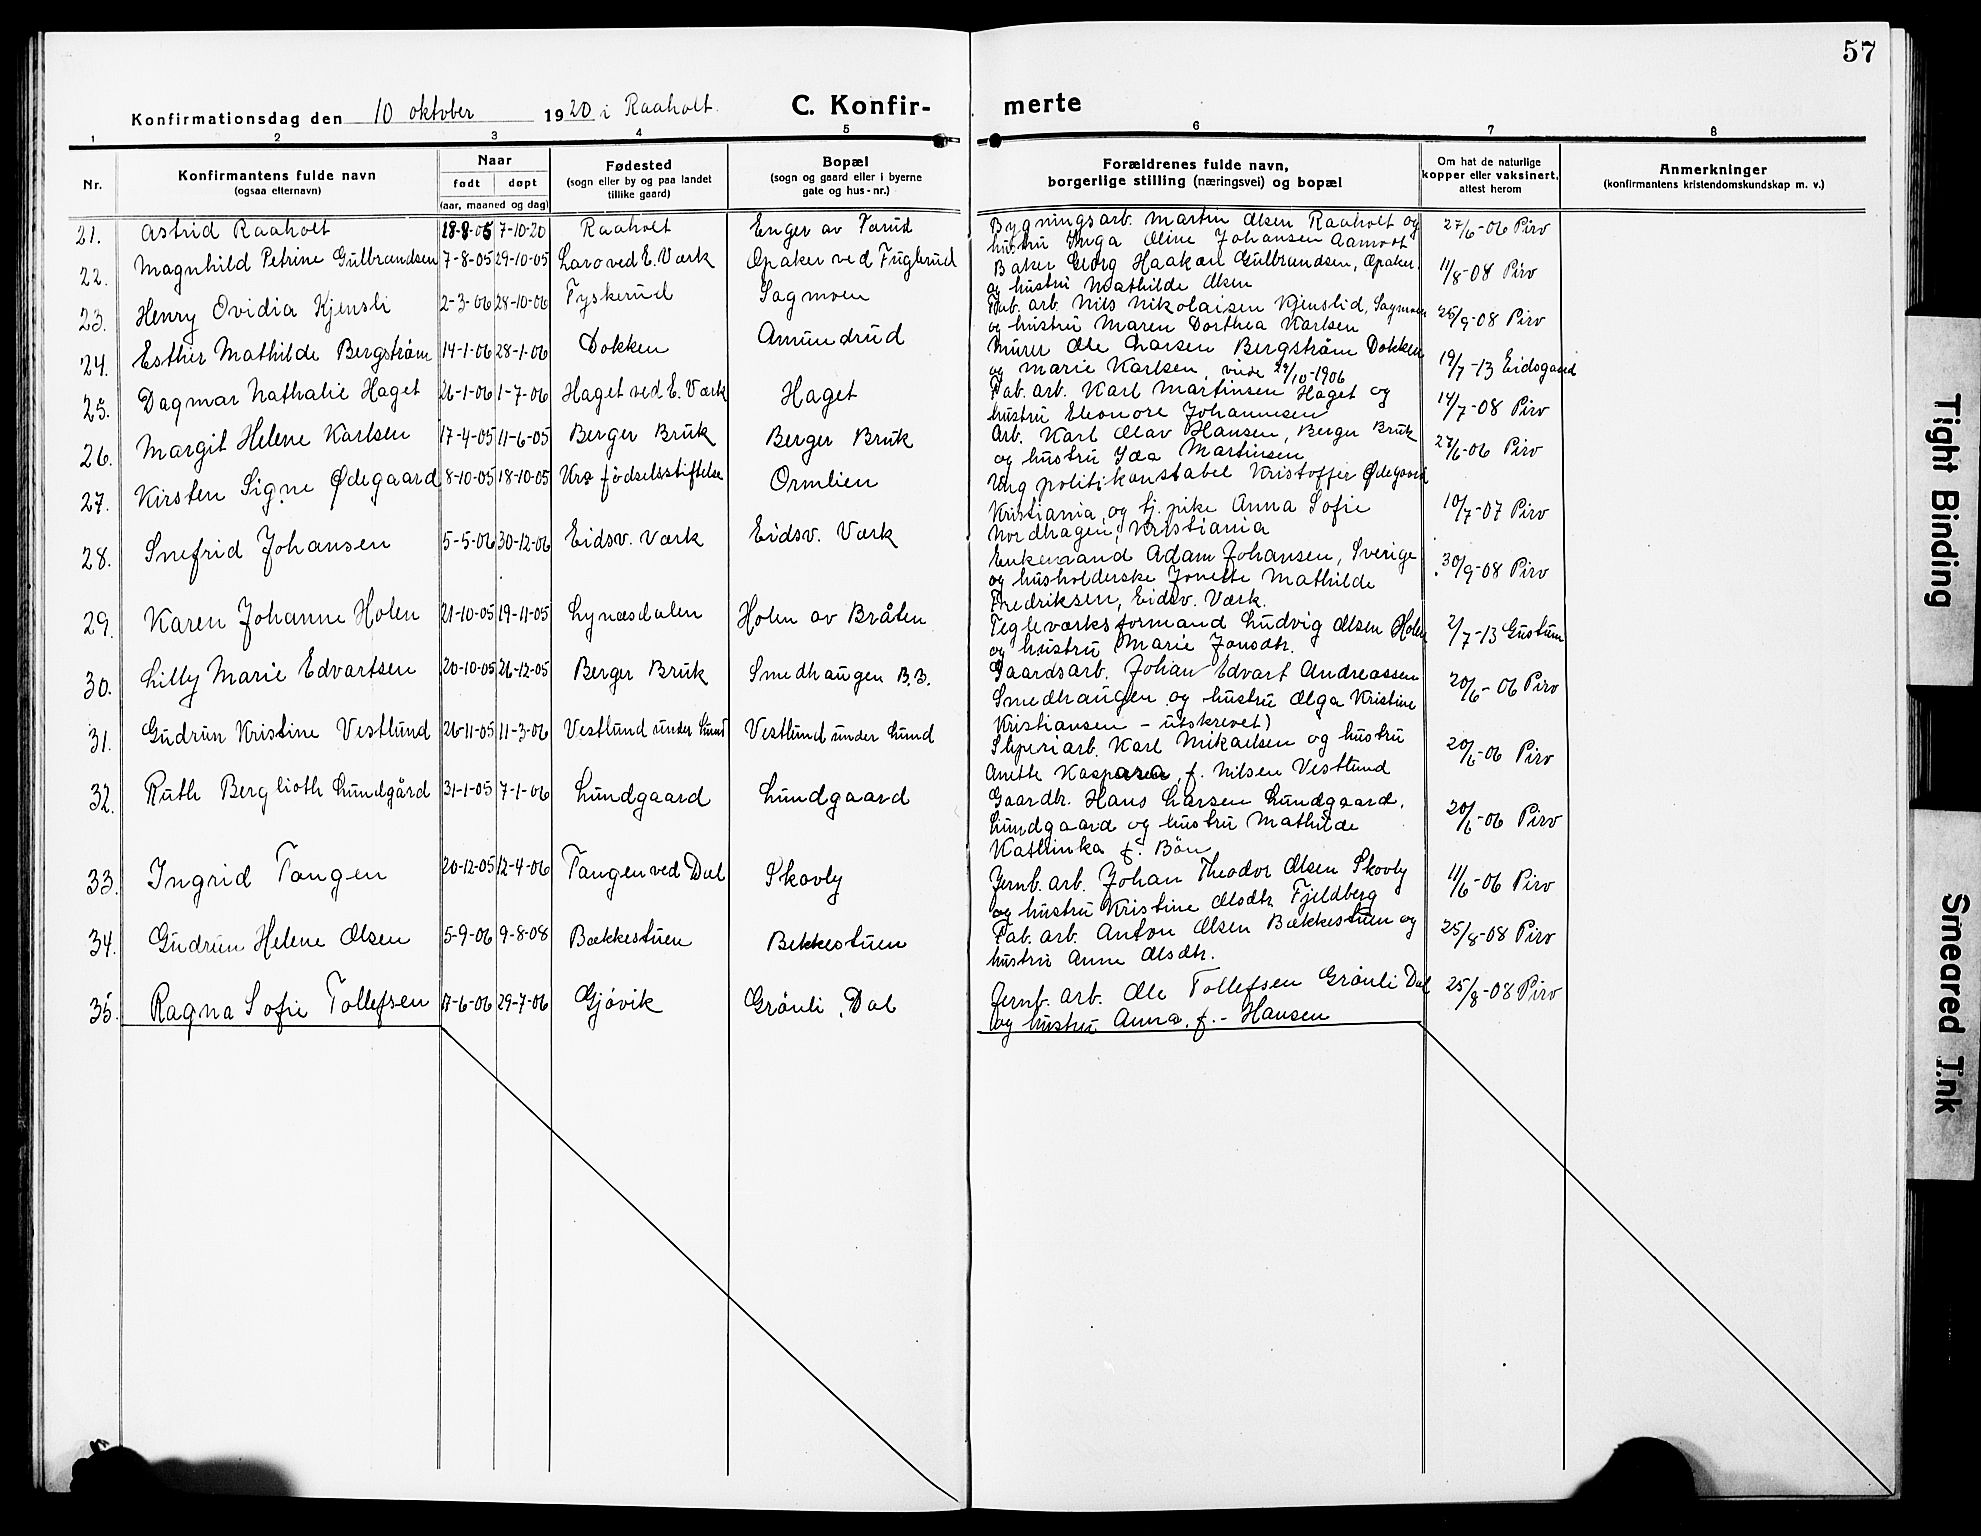 57
Konfirmationsdag den 10 oktober 1920 i Raaholt. C. Konfirmerte
1 2 3 4 5 6 7 8
Nr.
Konfirmantens fulde navn
(ogsaa efternavn)
Naar
født døpt
(aar, maaned og dag)
Fødested
(sogn eller by og paa landet
tillike gaard)
Bopæl
(sogn og gaard eller i byerne
gate og hus-nr.)
Forældrenes fulde navn,
borgerlige stilling (næringsvei) og bopæl
Om hat de naturlige
kopper eller vaksinert,
attest herom
Anmerkninger
(konfirmantens kristendomskundskap m. v.)
21. Astrid Raaholt 18-8-05 7-10-20 Raaholt Enger av Farud
Bygningsarb. Martin Olsen Raaholt og
hustru Inga Oline Johansen Aamodt
27/6-06 Pirv
22. Magnhild Petrine Gulbrandsen 7-8-05 29-10-05 Laro ved E. Værk Opaker ved Fuglerud
Baker Georg Haakon Gulbrandsen, Opaker,
og hustru Mathilde Olsen
11/8-08 Pirv
23. Henry Ovidia Kjensli 2-3-06 28-10-06 Tyskerud Sagmoen
Fab. arb. Nils Nikolaisen Kjenslid, Sagmoen
og hustru Maren Dorthea Karlsen
25/9-08 Pirv
24. Esther Mathilde Bergstrøm 14-1-06 28-1-06 Dokken Amundrud
Murer Ole Larsen Bergstrøm Dokken
og Marie Karlsen, viede 29/10-1906
19/7-13 Eidsgaard
25. Dagmar Nathalie Haget 26-1-06 1-7-06 Haget ved E. Værk Haget
Fab. arb. Karl Martinsen Haget og
hustru Eleonore Johannesen
14/7-08 Pirv
26. Margit Helene Karlsen 17-4-05 11-6-05 Berger Bruk Berger Bruk
Arb. Karl Olav Hansen, Berger Bruk
og hustru Ida Martinsen
27/6-06 Pirv
27. Kirsten Signe Ødegaard 8-10-05 18-10-05 Kra fødselsstiftelse Ormlien
Ung. politikonstabel Kristoffer Ødegaard
Kristiania, og tj. pike Anna Sofie
Nordhagen, Kristiania
10/7-07 Pirv
28. Snefrid Johansen 5-5-06 30-12-06 Eidsv. Værk Eidsv. Værk
Enkemand Adam Johansen, Sverige
og husholderske Jonette Mathilde
Fredriksen, Eidsv. Værk.
30/9-08 Pirv
29. Karen Johanne Holen 21-10-05 19-11-05 Lynæsdalen Holen av Bråten
Tegleverksformand Ludvig Olsen Holen
og hustru Marie Jonsdtr.
2/7-13 Gustum
30. Lilly Marie Edvartsen 20-10-05 26-12-05 Berger Bruk Smedhaugen B.B.
Gaardsarb. Johan Edvart Andreassen
Smedhaugen og hustru Olga Kristine
Kristiansen - utskrevet)
20/6-06 Pirv
31. Gudrun Kristine Vestlund 26-11-05 11-3-06 Vestlund under Lund Vestlund under Lund
Sliperiarb. Karl Mikaelsen og hustru
Anette Kaspara, f. Nilsen Vestlund
20/6-06 Pirv
32. Ruth Berglioth Lundgård 31-1-05 7-1-06 Lundgaard Lundgaard
Gaardbr. Hans Larsen Lundgaard,
Lundgaard og hustru Mathilde
Kathinka f. Bön
20/6-06 Pirv
33. Ingrid Tangen 20-12-05 12-4-06 Tangen ved Dal Skovly
Jernb. arb. Johan Theodor Olsen Skovly
og hustru Kristine Olsdtr. Fjeldberg
11/6-06 Pirv
34. Gudrun Helene Olsen 5-9-06 9-8-08 Bækkestuen Bekkestuen
Fab. arb. Anton Olsen Bækkestuen og
hustru Anne Olsdtr.
25/8-08 Pirv
35. Ragna Sofie Tollefsen 17-6-06 29-7-06 Gjövik Grönli, Dal
Jernb. arb. Ole Tollefsen Grönli Dal
og hustru Anna, f.- Hansen
25/8-08 Pirv
Tight Binding
Smeared Ink